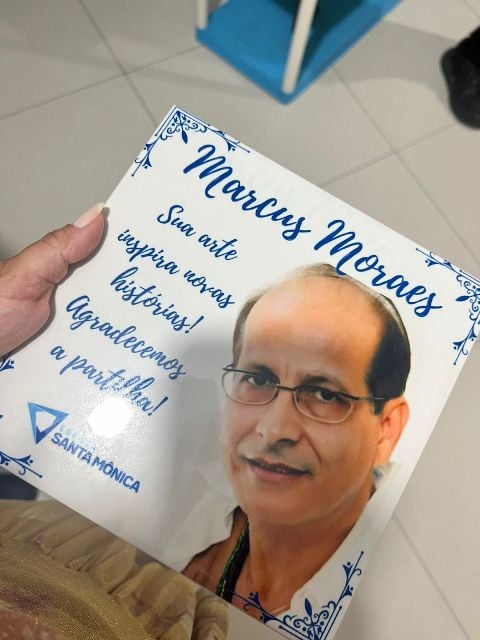 Marcus Moraes
Sua arte
inspira novas
histórias!
Agradecemos
a partilha!
SANTA MÔNICA